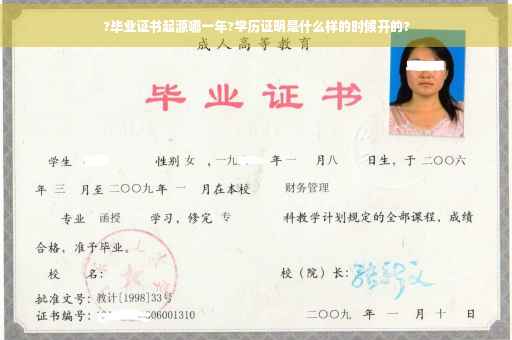 ?毕业证书起源哪一年?学历证明是什么样的时候开的?
成人高等教育
毕业证书
学生 性别 女 ，一九 年 一 月八 日生，于 二〇〇六
年 三 月至 二〇〇九 年 一 月在本校 财务管理
专业 函授 学习，修完 专 科教学计划规定的全部课程，成绩
合格，准予毕业。
校 名： 校（院）长：
批准文号：教计[1998]33号
证书编号： 06001310 二〇〇九 年 一 月 十 日